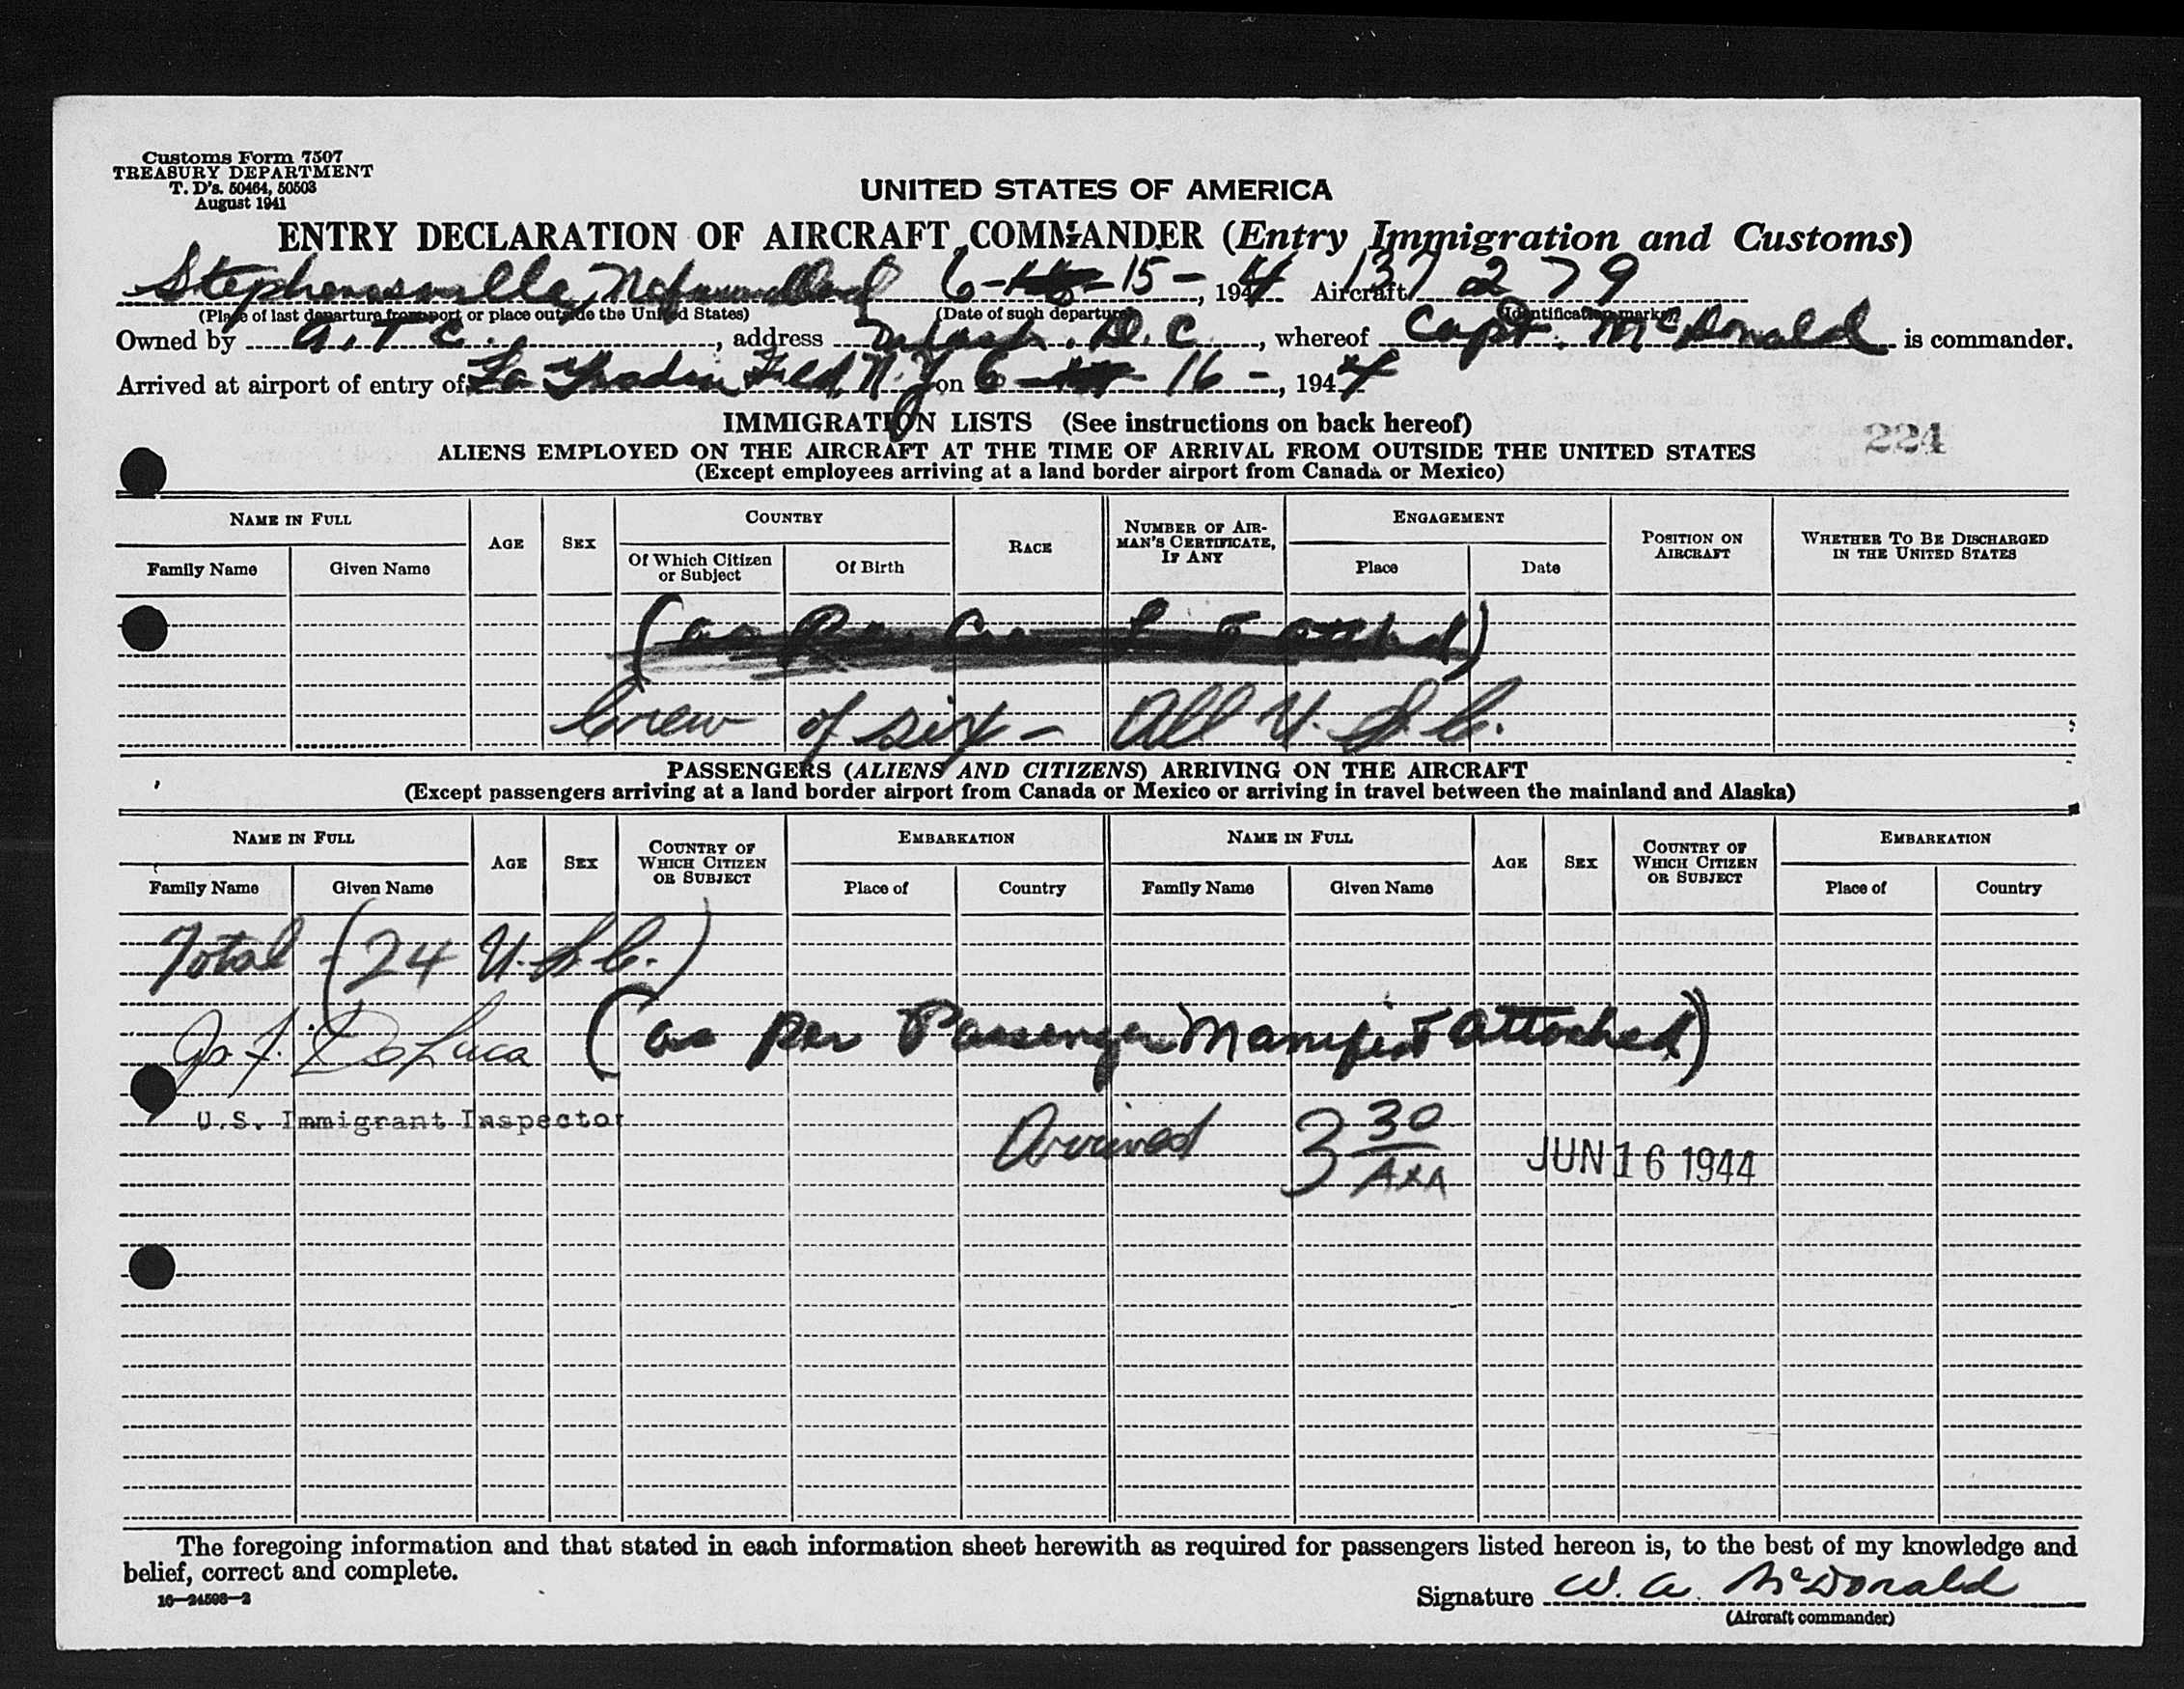 Customs Form 7507
TREASURY DEPARTMENT
T. D's. 50464, 50503
August 1941
UNITED STATES OF AMERICA
ENTRY DECLARATION OF AIRCRAFT COMMANDER (Entry Immigration and Customs)
Stephensville, 6- -15-, 1944 Aircraft 137279
(Place of last departure from port or place outside the United States) (Date of such departure) (Identification marks)
Owned by A.T.C., address Wash. D.C., whereof Capt. McDonald is commander.
Arrived at airport of entry of La Guardia Field N.Y. on 6- -16-, 1944
IMMIGRATION LISTS (See instructions on back hereof)
224
ALIENS EMPLOYED ON THE AIRCRAFT AT THE TIME OF ARRIVAL FROM OUTSIDE THE UNITED STATES
(Except employees arriving at a land border airport from Canada or Mexico)
NAME IN FULL AGE SEX COUNTRY RACE NUMBER OF AIRMAN'S CERTIFICATE, IF ANY ENGAGEMENT POSITION ON AIRCRAFT WHETHER TO BE DISCHARGED IN THE UNITED STATES
Family Name Given Name Of Which Citizen or Subject Of Birth Place Date
Crew of six - All U.S.C.
PASSENGERS (ALIENS AND CITIZENS) ARRIVING ON THE AIRCRAFT
(Except passengers arriving at a land border airport from Canada or Mexico or arriving in travel between the mainland and Alaska)
NAME IN FULL AGE SEX COUNTRY OF WHICH CITIZEN OR SUBJECT EMBARKATION NAME IN FULL AGE SEX COUNTRY OF WHICH CITIZEN OR SUBJECT EMBARKATION
Family Name Given Name Place of Country Family Name Given Name Place of Country
Total - (24 U.S.C.)
Jos. F. DeLuca (as per Passenger Manifest attached)
U.S. Immigrant Inspector
Arrived 3 30 JUN 16 1944
The foregoing information and that stated in each information sheet herewith as required for passengers listed hereon is, to the best of my knowledge and
belief, correct and complete.
16—24598-2
Signature W. A. McDonald
(Aircraft commander)